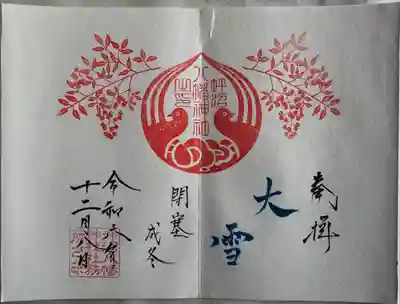 奉拝
大雪
閉塞
成冬
令和
十二月八日
八幡神社